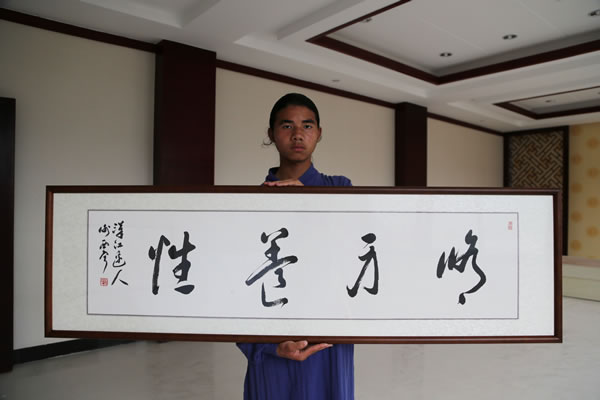 修身養性
漢江道人